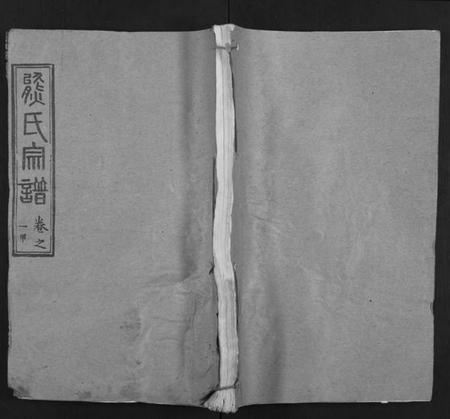 熊氏宗譜
卷之
一